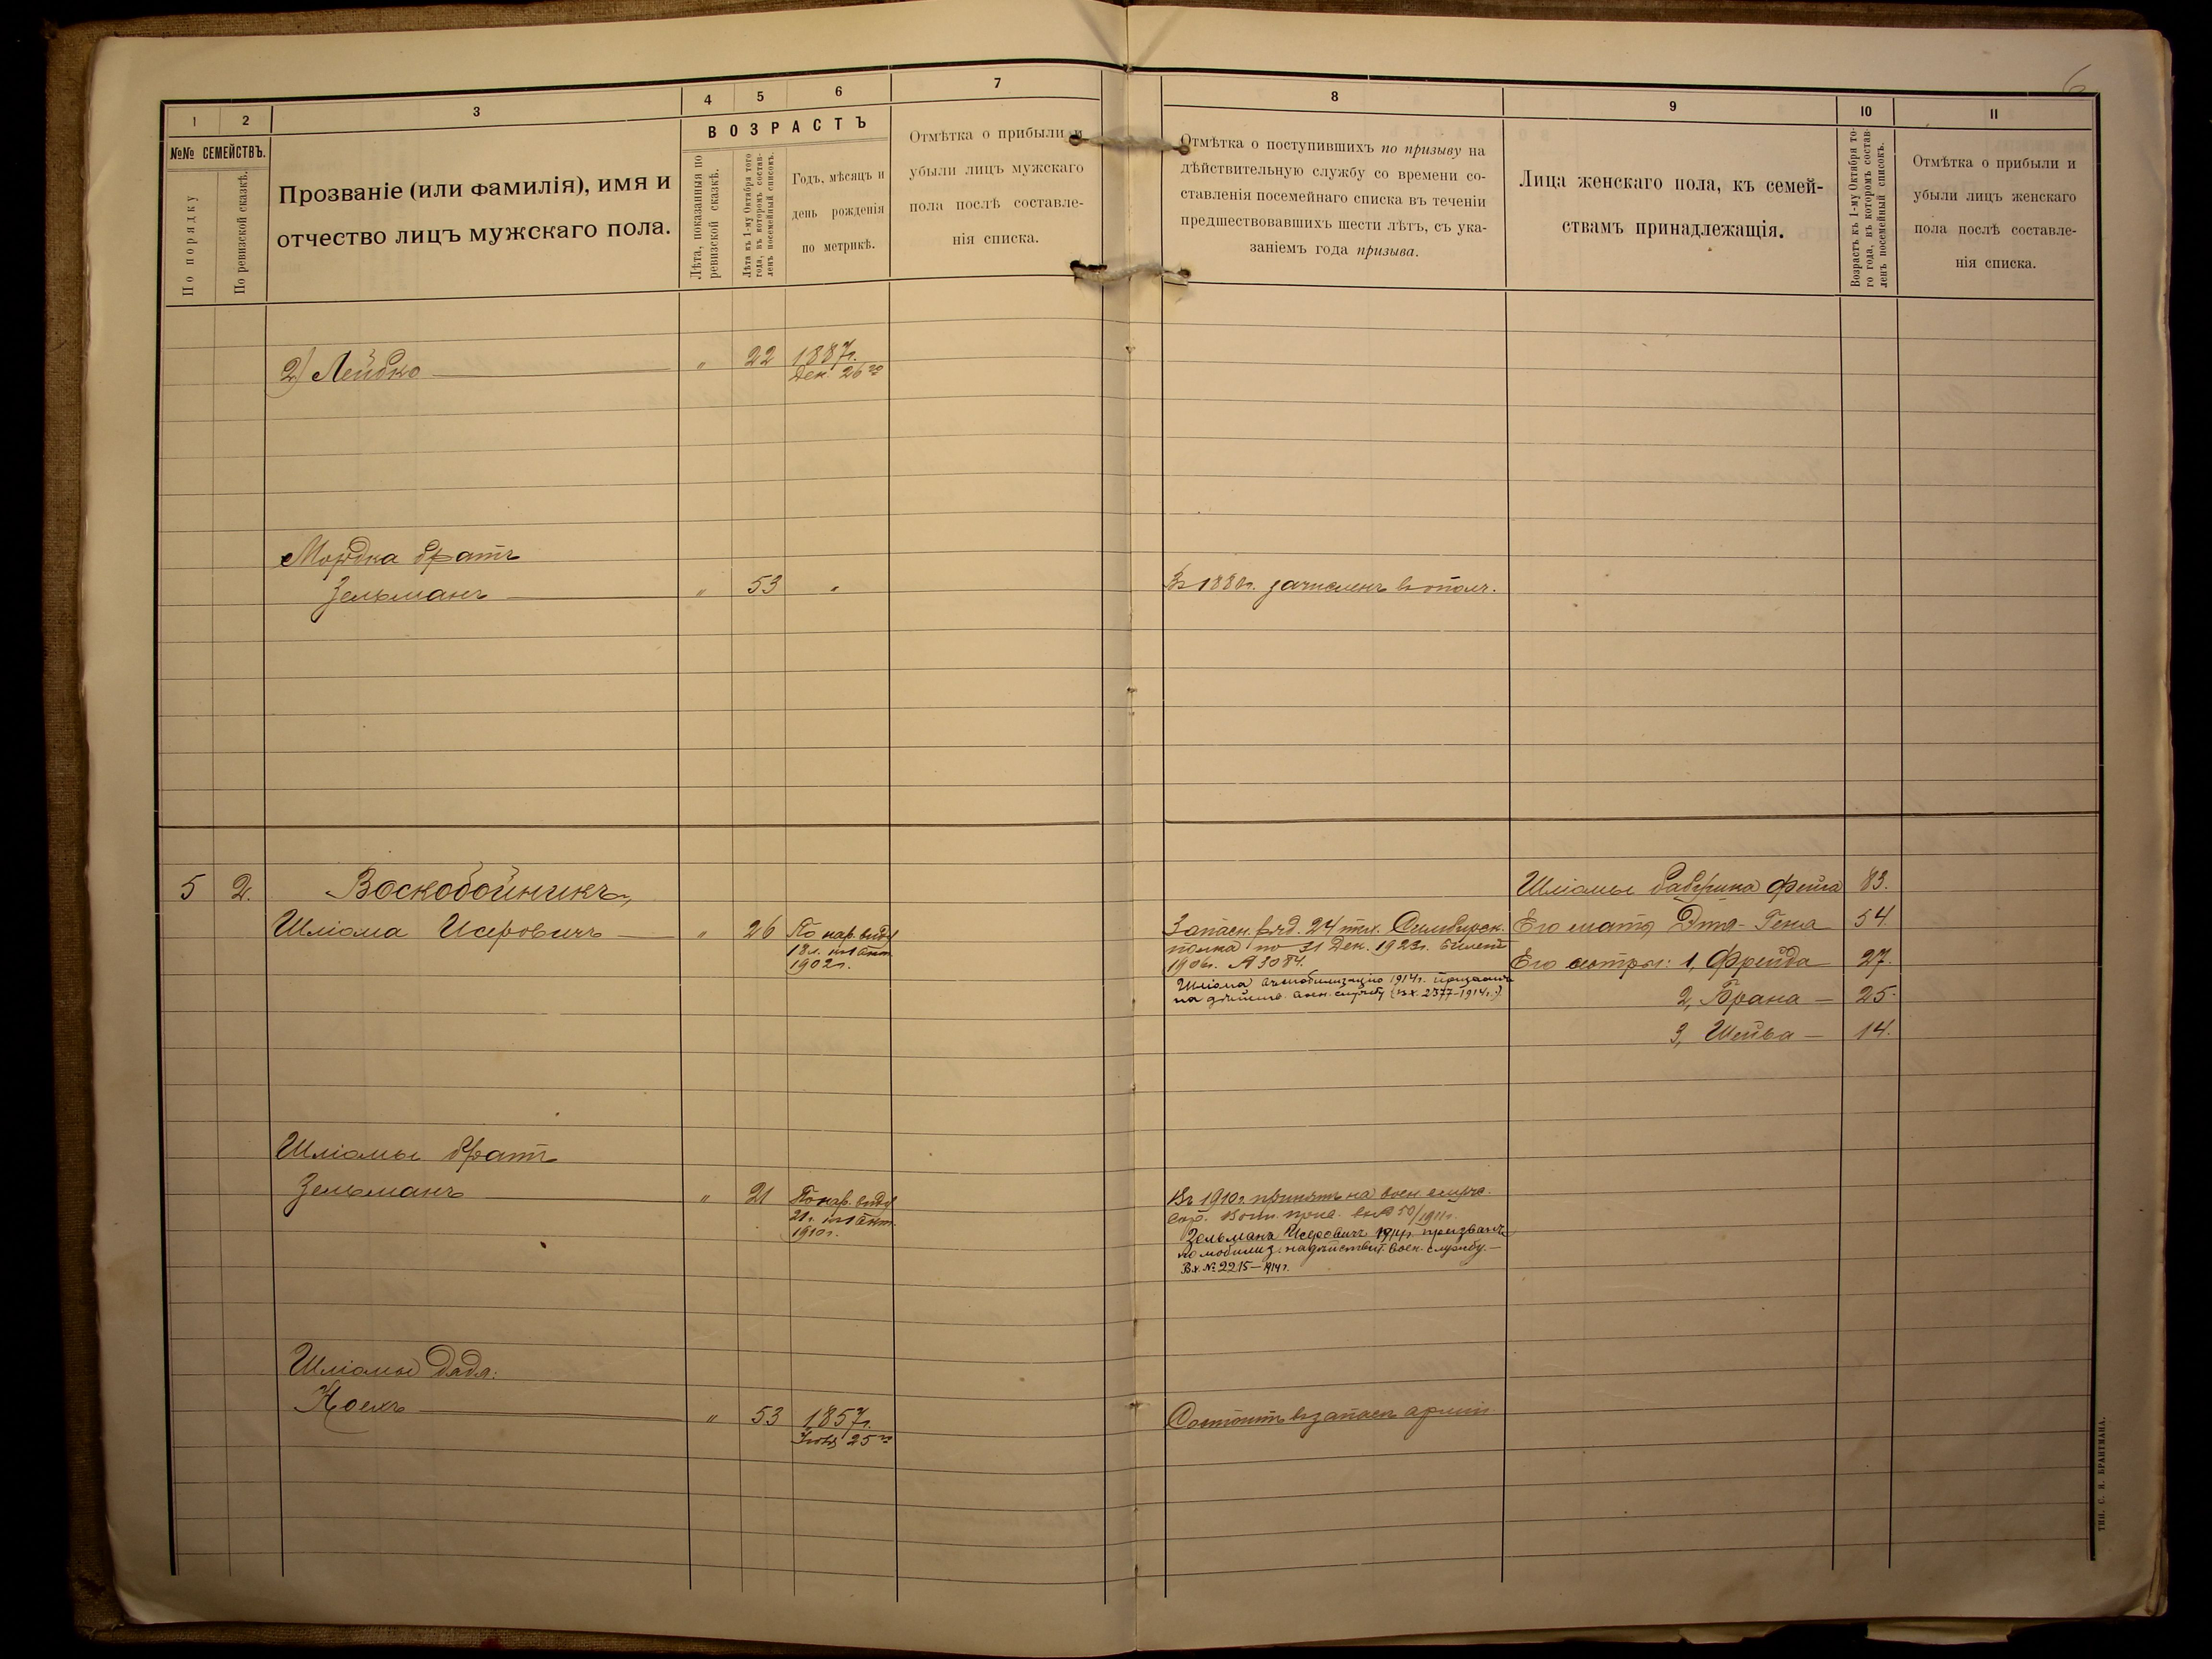 6
1
2
3
4
5
6
7
8
9
10
11
№№ СЕМЕЙСТВЪ.
По порядку
По ревизской сказкѣ.
Прозваніе (или фамилія), имя и
отчество лицъ мужскаго пола.
ВОЗРАСТЪ
Лѣта, показанныя по
ревизской сказкѣ.
Лѣта къ 1-му Октября того
года, въ которомъ состав-
ленъ посемейный списокъ.
Годъ, мѣсяцъ и
день рожденія
по метрикѣ.
Отмѣтка о прибыли и
убыли лицъ мужскаго
пола послѣ составле-
нія списка.
Отмѣтка о поступившихъ по призыву на
дѣйствительную службу со времени со-
ставленія посемейнаго списка въ теченіи
предшествовавшихъ шести лѣтъ, съ ука-
заніемъ года призыва.
Лица женскаго пола, къ семей-
ствамъ принадлежащія.
Возрастъ къ 1-му Октября то-
го года, въ которомъ состав-
ленъ посемейный списокъ.
Отмѣтка о прибыли и
убыли лицъ женскаго
пола послѣ составле-
нія списка.
2) Лейбко — " 22 1887г.
Дек. 26го
Мордка братъ
Зельманъ — " 53 " зачисленъ въ ополч.
5 2. Воскобойникъ, Шліомы бабушка Фейга 83.
Шліома Исеровичъ — " 26 По нар. виду Запасн. ряд. 24 пѣх. Симбирск. Его мать Этя-Гена 54.
18 л. къ 1 окт. полка по 31 Дек. 1923г. билетъ
1902г. 1906г. № 3084. Его сестры: 1, Фрейда 27.
Шліома въ мобилизацію 1914г. призванъ
на дѣйств. воен. службу (вх. 2377-1914г.)
2, Брана — 25.
3, Шейва — 14.
Шліомы братъ
Зельманъ — " 21 По нар. виду Въ 1910г. принятъ на воен. службу.
21 г. къ 1 окт. 50/1911г.
1910г. Зельманъ Исеровичъ 1914г. призванъ
по мобилиз. на дѣйствит. воен. службу. —
Вх. № 2215—1914г.
Шліомы дядя:
Ноехъ — " 53 1857г. Состоитъ въ запасѣ арміи
25го
ТИП. С. Я. БРАНТМАНА.